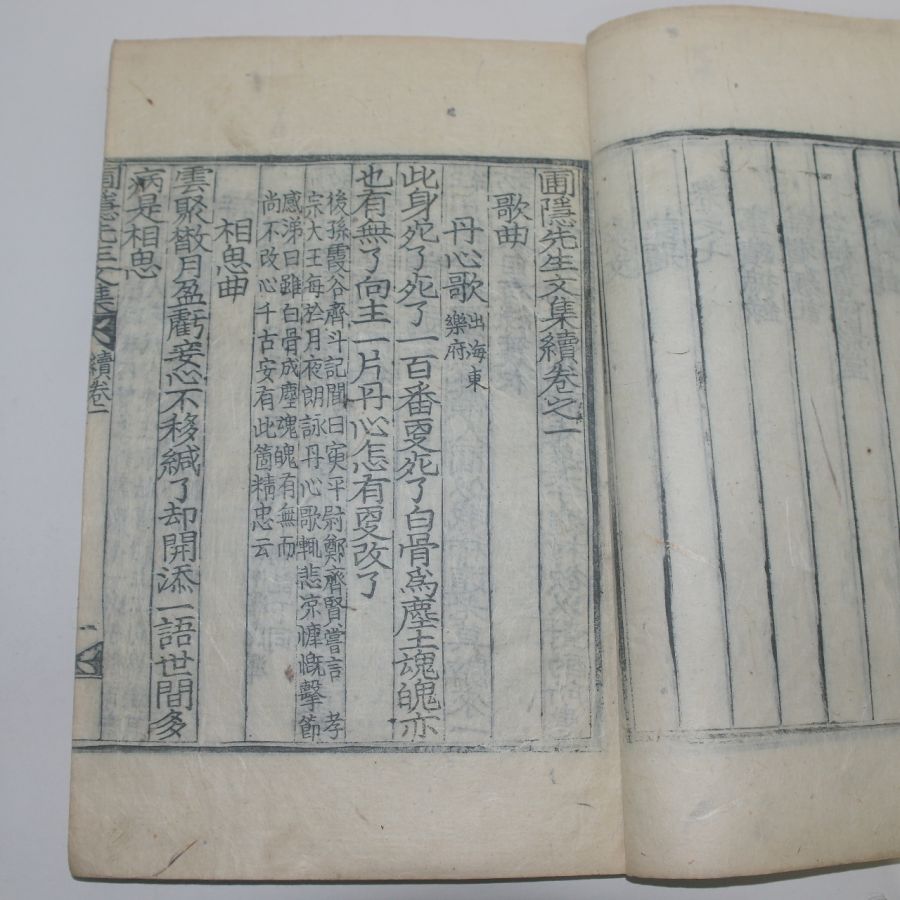 圃隱先生文集續卷之一
歌曲
丹心歌 出海東樂府
此身死了死了一百番更死了白骨爲塵土魂魄亦
也有無了向主一片丹心怎有更改了
後孫霞谷齊斗記聞曰寅平尉鄭齊賢嘗言 孝
宗大王每於月夜朗詠丹心歌輒悲凉慷慨擊節
感涕曰雖白骨成塵魂魄有無而
尚不改心千古安有此箇精忠云
相思曲
雲聚散月盈虧妾心不移緘了却開添一語世間多
病是相思
圃隱先生文集 續卷一 一